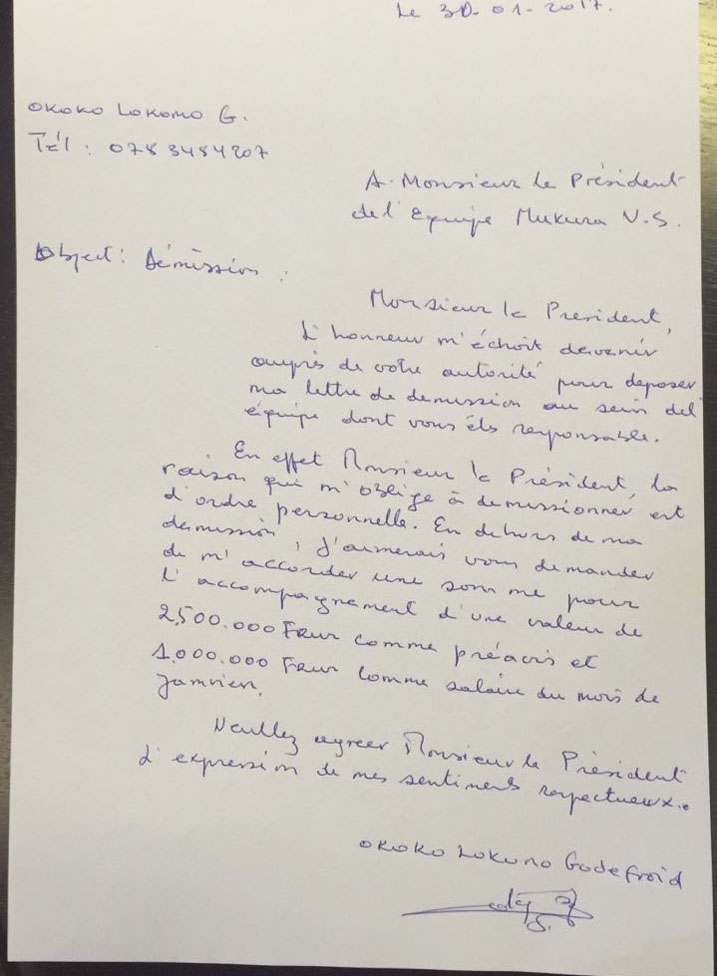 Le 30-01-2017.
OKOKO LOKOMO G.
Tél : 0783484207
A. Monsieur le Président
del'Equipe Mukura V.S.
Object : Démission :
Monsieur le President,
L'honneur m'échoit devenir
auprès de votre autorité pour deposer
ma lettre de demission au sein del'
équipe dont vous êts responsable.
En effet Monsieur le Président, la
raison qui m'oblige à demissionner est
d'ordre personnelle. En dehors de ma
demission, J'aimerais vous demander
de m'accorder une somme pour
L'accompagnement d'une valeur de
2,500.000 Frw comme préavis et
1,000.000 Frw comme salaire du mois de
Janvier.
Veullez agreer Monsieur le Président
L'expression de mes sentiments respectueux.
OKOKO LOKUMO Godefroid